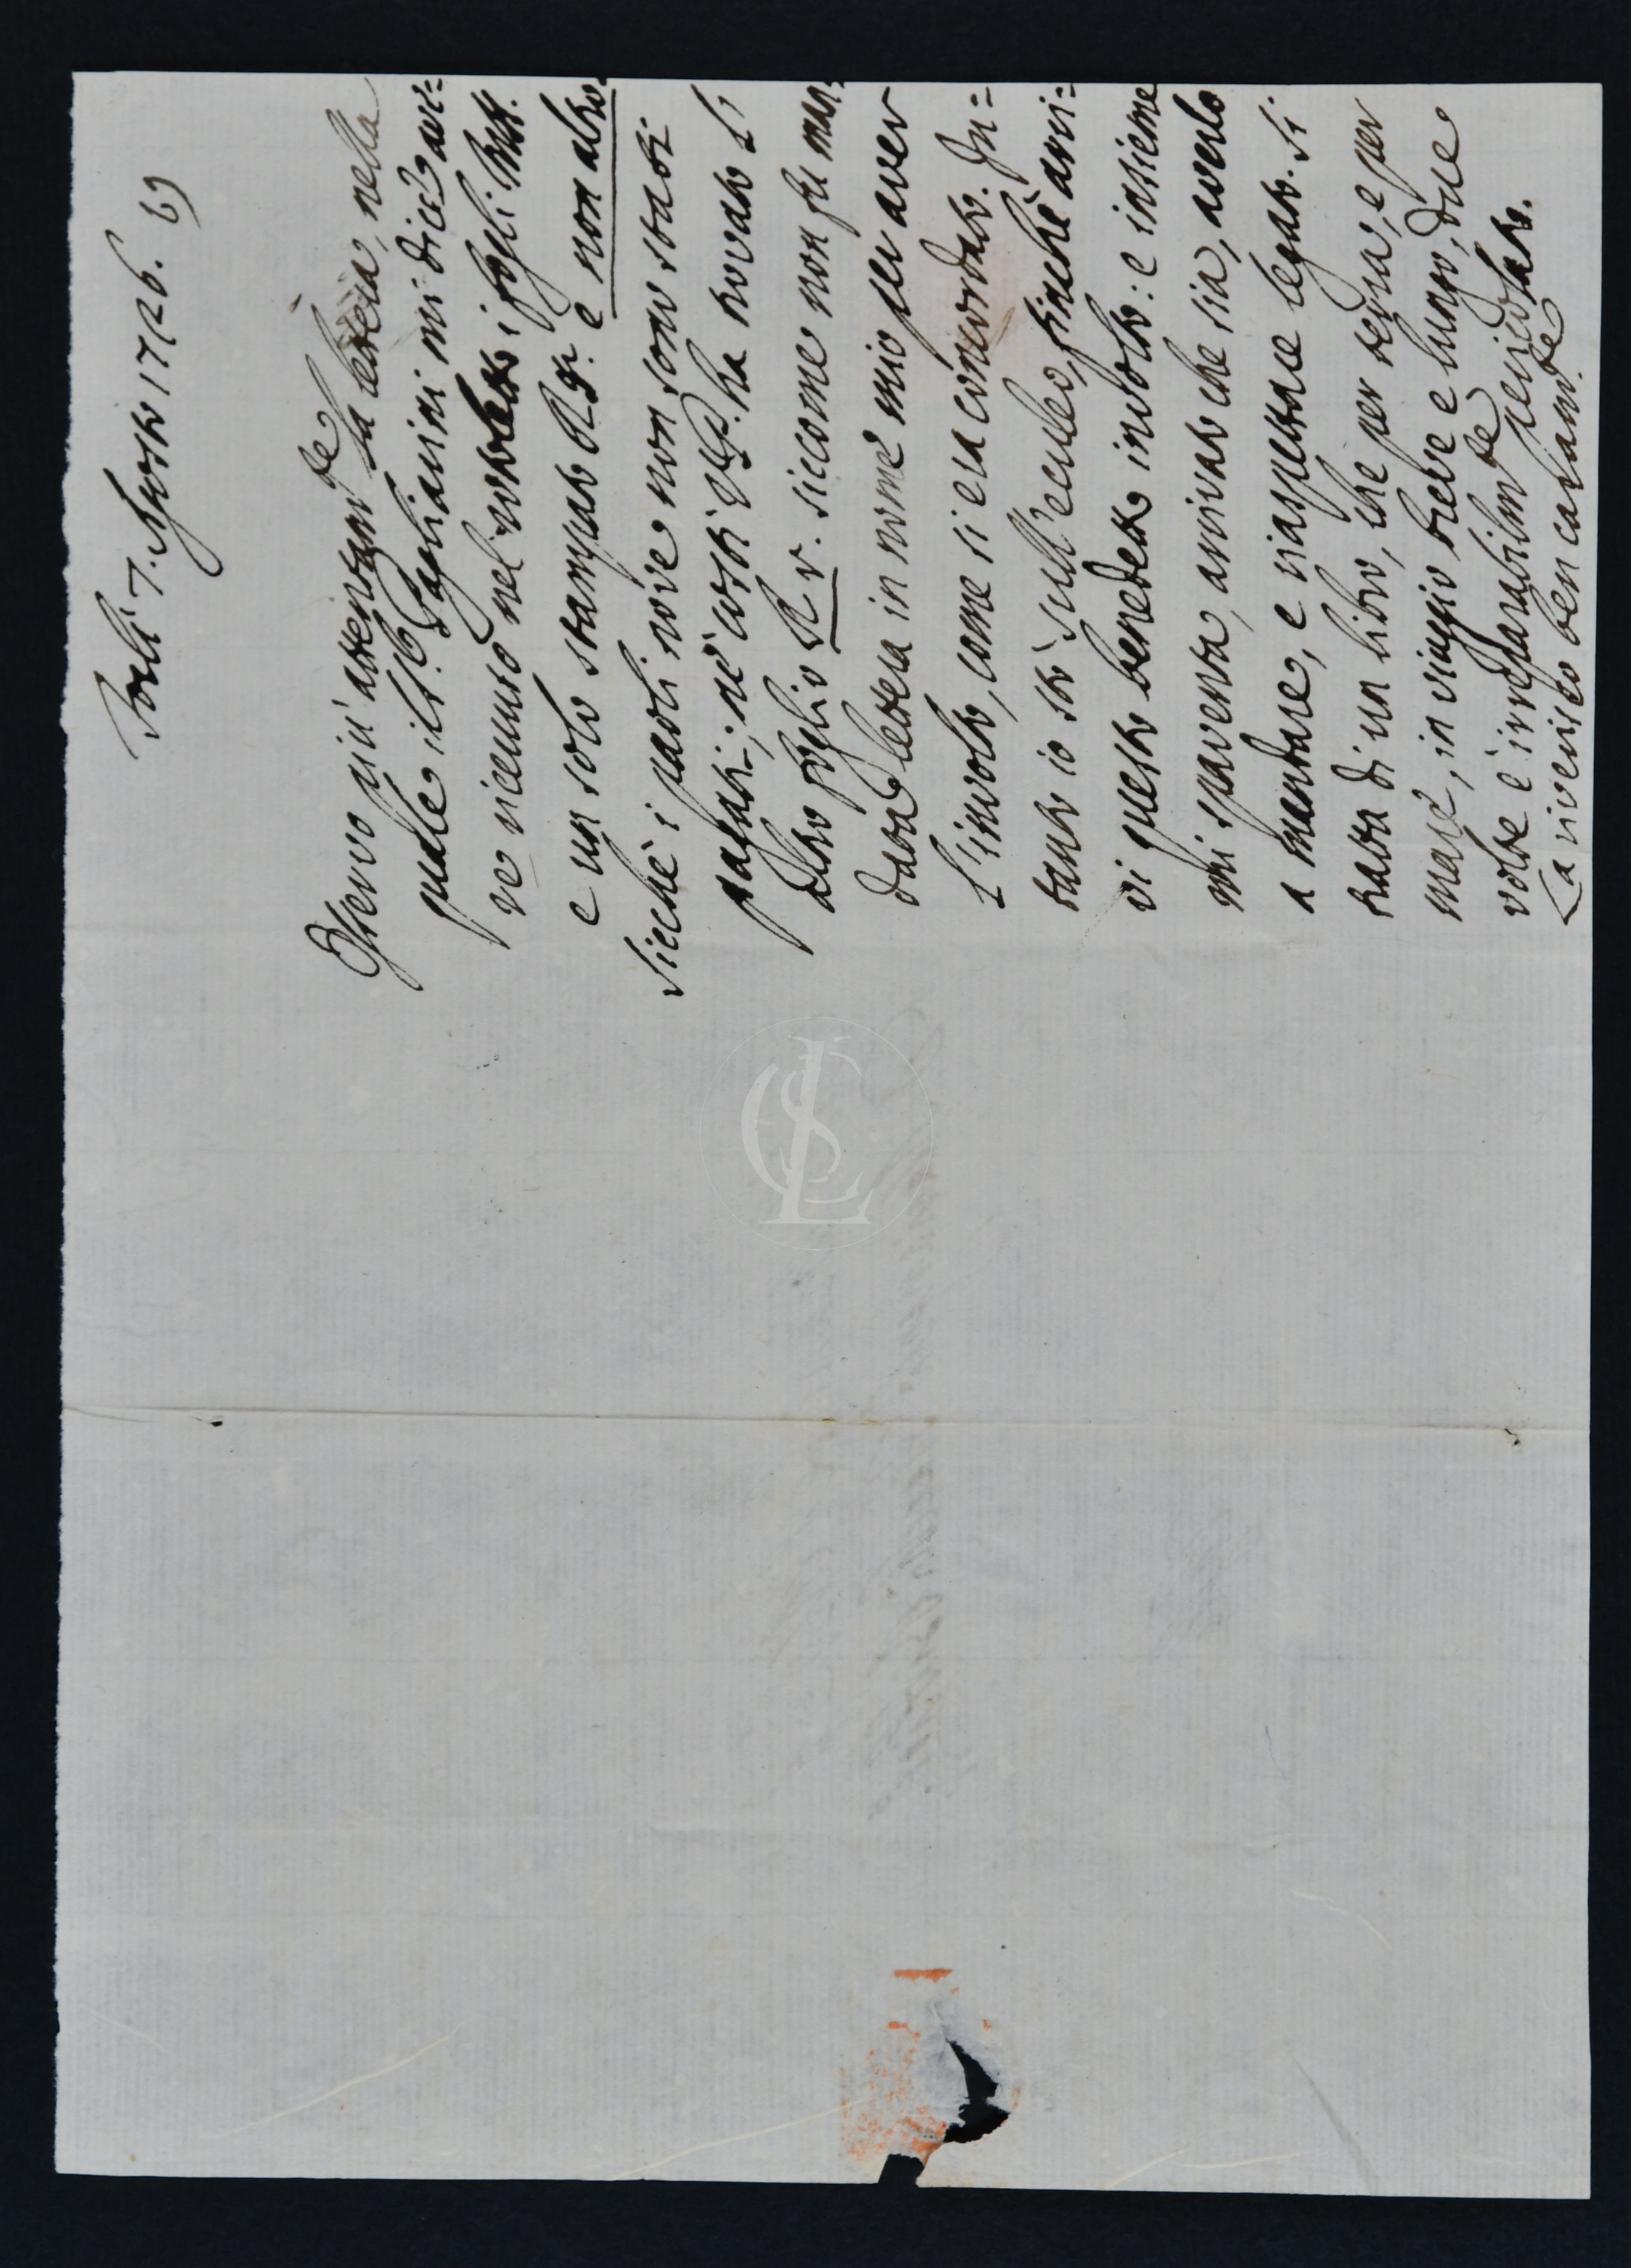 Forlì 7. Agosto 1726. 69
Osservo più attentam.te la lettera, nella
quale il S.r Pagliarini mi dice d'ave=
re ricevuto nel involetto i fogli Mss.
e un solo stampato R gr. e non altro.
Sicchè i paoli nove non sono stati
pagati; nè costì V.P. ha trovato l'
altro foglio R r. siccome non fu man=
data lettera in nome mio per aver
l'involto, come si era concordato. In=
tanto io sto sull'eculeo, finchè arri=
vi questo benedetto involto: e insieme
mi spaventa, arrivato che sia, averlo
a mandare, e riaspettare legato. Si
tratta di un libro, che per terra, e per
mare, in viaggio breve e lungo, due
volte è irreparabilm.te pericolato.
La riverisco ben caldam.te